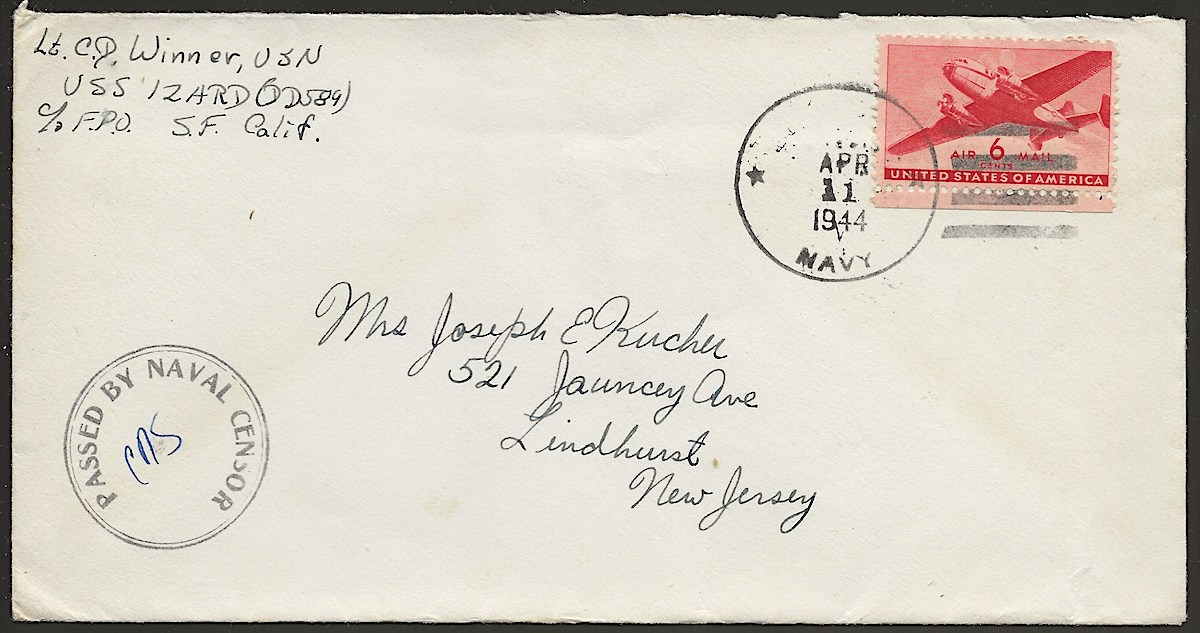 Lt. C.D. Winner, USN
USS IZARD (DD589)
c/o F.P.O. S.F. Calif.
APR
11
1944
NAVY
AIR 6 MAIL
CENTS
UNITED STATES OF AMERICA
Mrs Joseph E Kucher
521 Jauncey Ave
Lindhurst
New Jersey
PASSED BY NAVAL CENSOR